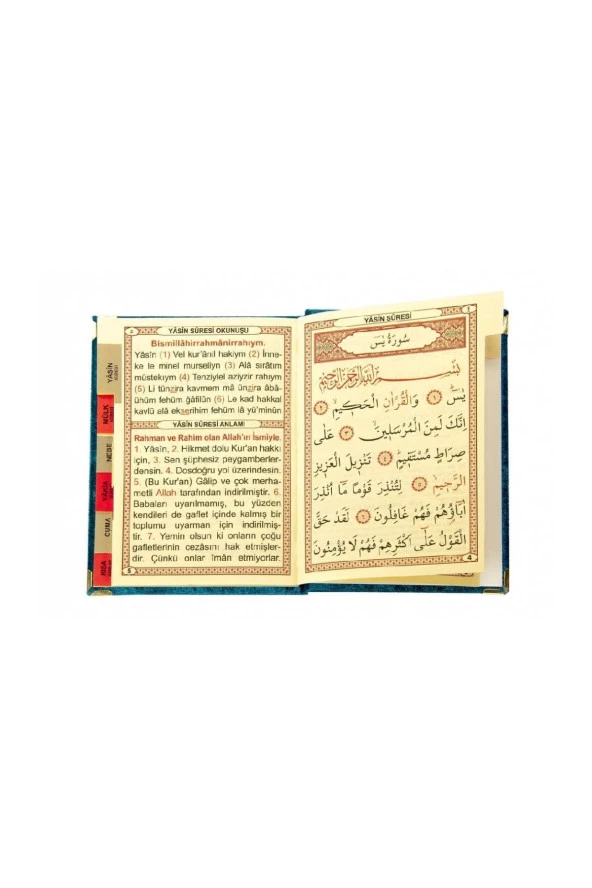 YÂSÎN
MÜLK
NEBE
VÂKIA
CUMA
KISA
YÂSÎN SÛRESİ OKUNUŞU
Bismillâhirrahmânirrahıym.
Yâsîn (1) Vel kur'ânil hakiym (2) İnne-
ke le minel murseliyn (3) Alâ sırâtım
müstekıym (4) Tenziylel aziyzir rahıym
(5) Li tünzira kavmem mâ ünzira âbâ-
ühüm fehüm ğâfilûn (6) Le kad hakkal
kavlü alâ ekserihim fehüm lâ yü'minûn
YÂSÎN SÛRESİ ANLAMI
Rahman ve Rahim olan Allah'ın İsmiyle.
1. Yâsîn, 2. Hikmet dolu Kur'an hakkı
için, 3. Sen şüphesiz peygamberler-
densin. 4. Dosdoğru yol üzerindesin.
5. (Bu Kur'an) Gâlip ve çok merha-
metli Allah tarafından indirilmiştir. 6.
Babaları uyarılmamış, bu yüzden
kendileri de gaflet içinde kalmış bir
toplumu uyarman için indirilmiş-
tir. 7. Yemin olsun ki onların çoğu
gafletlerinin cezâsını hak etmişler-
dir. Çünkü onlar îman etmiyorlar.
5
YÂSÎN SÛRESİ
1
سُورَةُ يٰسٓ
بِسْمِ اللّٰهِ الرَّحْمٰنِ الرَّحِيمِ
يٰسٓ ﴿١﴾ وَالْقُرْاٰنِ الْحَكِيمِ ﴿٢﴾
اِنَّكَ لَمِنَ الْمُرْسَلِينَ ﴿٣﴾ عَلٰى
صِرَاطٍ مُسْتَقِيمٍ ﴿٤﴾ تَنْزِيلَ الْعَزِيزِ
الرَّحِيمِ ﴿٥﴾ لِتُنْذِرَ قَوْمًا مَٓا اُنْذِرَ
اٰبَٓاؤُهُمْ فَهُمْ غَافِلُونَ ﴿٦﴾ لَقَدْ حَقَّ
الْقَوْلُ عَلٰٓى اَكْثَرِهِمْ فَهُمْ لَا يُؤْمِنُونَ
4